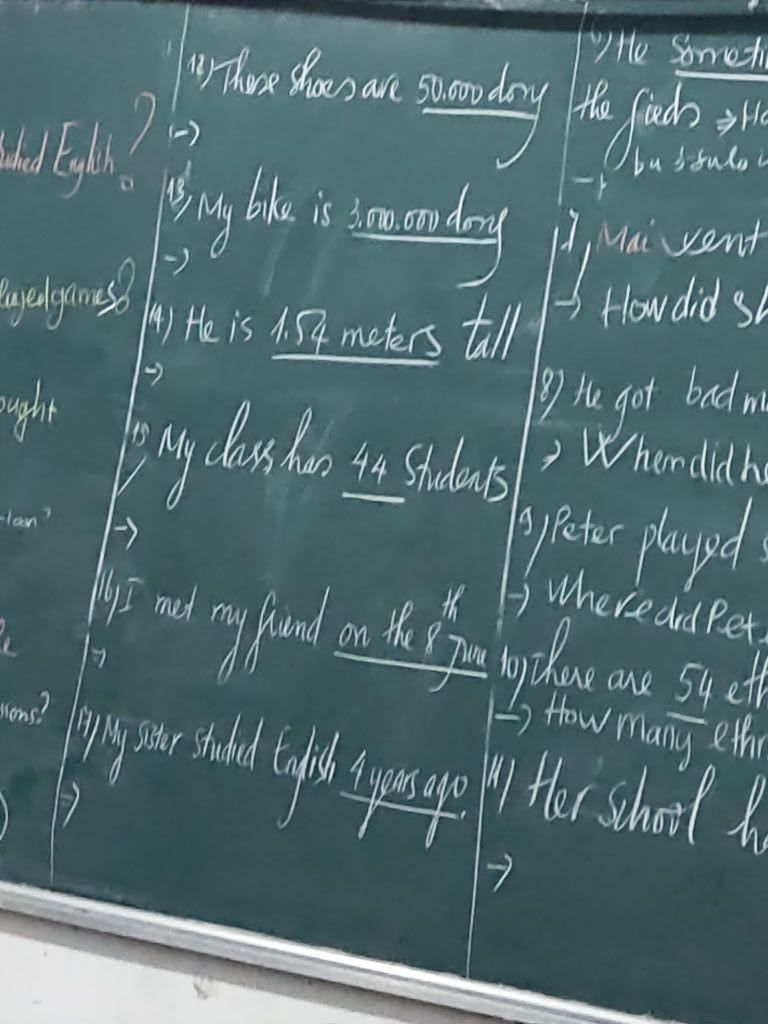 English?
games?
ought
sions?
12) These shoes are 50.000 dong
->
13, My bike is 3.000.000 dong
->
14) He is 1.54 meters tall
->
15 My class has 44 students
->
16, I met my friend on the 8th June
->
17, My sister studied English 4 years ago.
->
He Someti
the fieds => Ha
->
Mai went
-> How did sh
8) He got bad m
-> When did he
9, Peter played s
-> Where did Pet
10) There are 54 eth
-> How many ethn
11) Her school ha
->